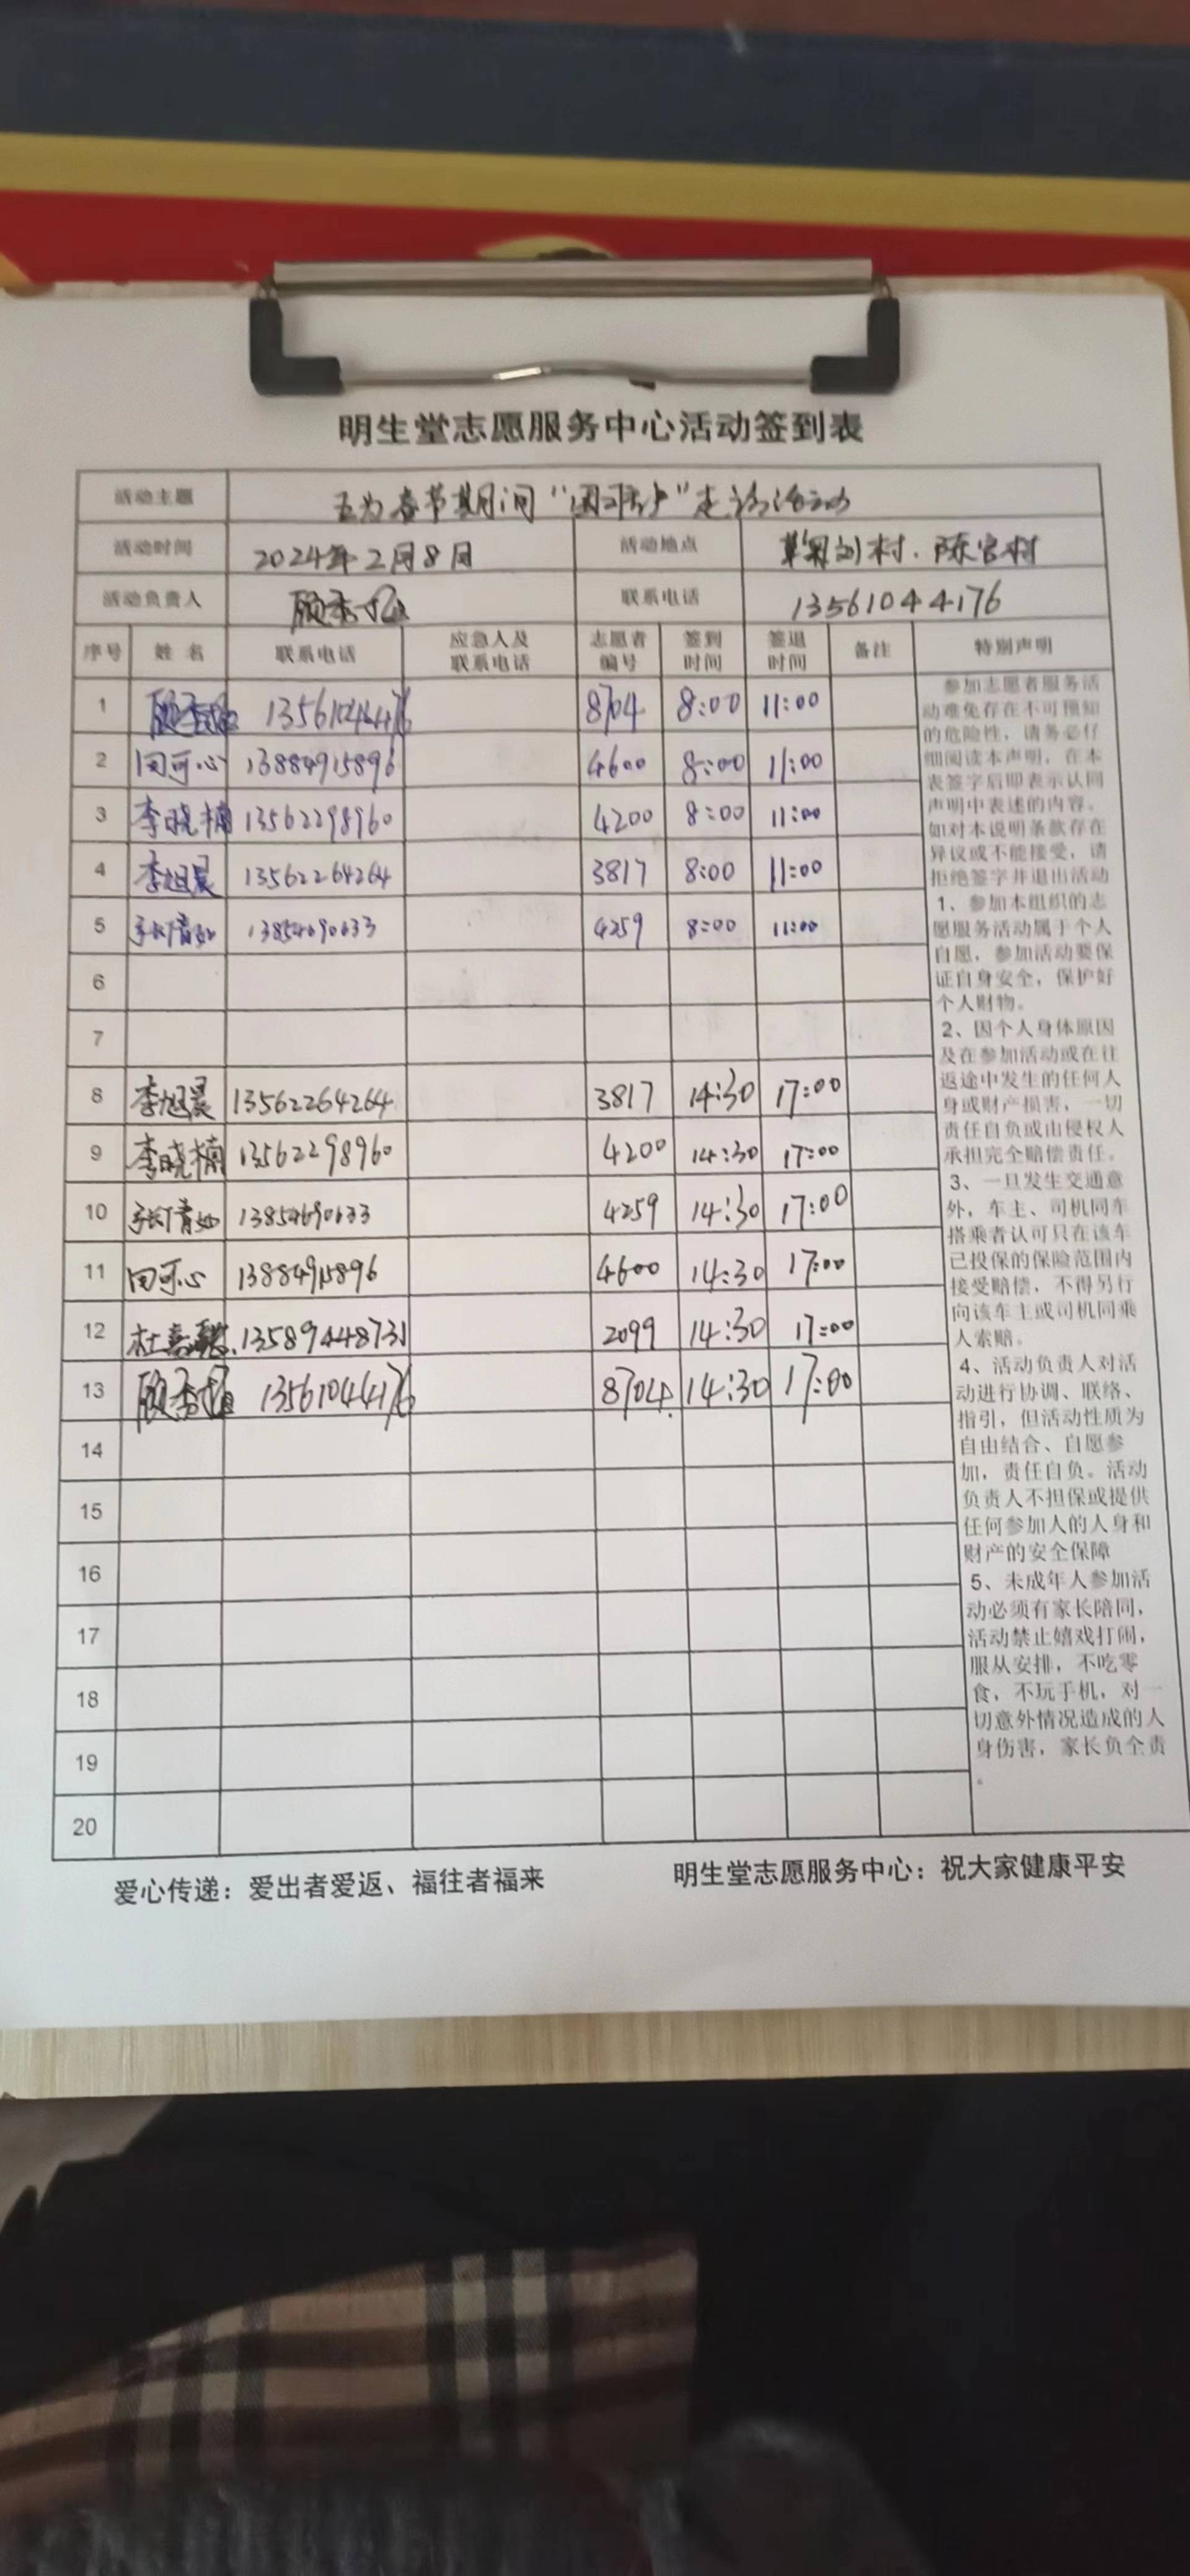 明生堂志愿服务中心活动签到表
活动主题 春节期间“困难户”走访活动
活动时间 2024年2月8日 活动地点 村.陈官村
活动负责人 联系电话 13561044176
序号 姓名 联系电话 应急人及联系电话 志愿者编号 签到时间 签退时间 备注 特别声明
1 13561044176 8704 8:00 11:00
2 田可心 13884915896 4600 8:00 11:00
3 李晓楠 13562298960 4200 8:00 11:00
4 李旭晨 13562264264 3817 8:00 11:00
5 4259 8:00 11:00
6
7
8 李旭晨 13562264264 3817 14:30 17:00
9 李晓楠 13562298960 4200 14:30 17:00
10 4259 14:30 17:00
11 田可心 13884915896 4600 14:30 17:00
12 13589448731 2099 14:30 17:00
13 13561044176 8704 14:30 17:00
14
15
16
17
18
19
20
参加志愿者服务活
动难免存在不可预知
的危险性，请务必仔
细阅读本声明，在本
表签字后即表示认同
声明中表述的内容。
如对本说明条款存在
异议或不能接受，请
拒绝签字并退出活动
1、参加本组织的志
愿服务活动属于个人
自愿，参加活动要保
证自身安全，保护好
个人财物。
2、因个人身体原因
及在参加活动或在往
返途中发生的任何人
身或财产损害，一切
责任自负或由侵权人
承担完全赔偿责任。
3、一旦发生交通意
外，车主、司机同车
搭乘者认可只在该车
已投保的保险范围内
接受赔偿，不得另行
向该车主或司机同乘
人索赔。
4、活动负责人对活
动进行协调、联络、
指引，但活动性质为
自由结合、自愿参
加，责任自负。活动
负责人不担保或提供
任何参加人的人身和
财产的安全保障
5、未成年人参加活
动必须有家长陪同，
活动禁止嬉戏打闹，
服从安排，不吃零
食，不玩手机，对一
切意外情况造成的人
身伤害，家长负全责
。
爱心传递：爱出者爱返、福往者福来 明生堂志愿服务中心：祝大家健康平安